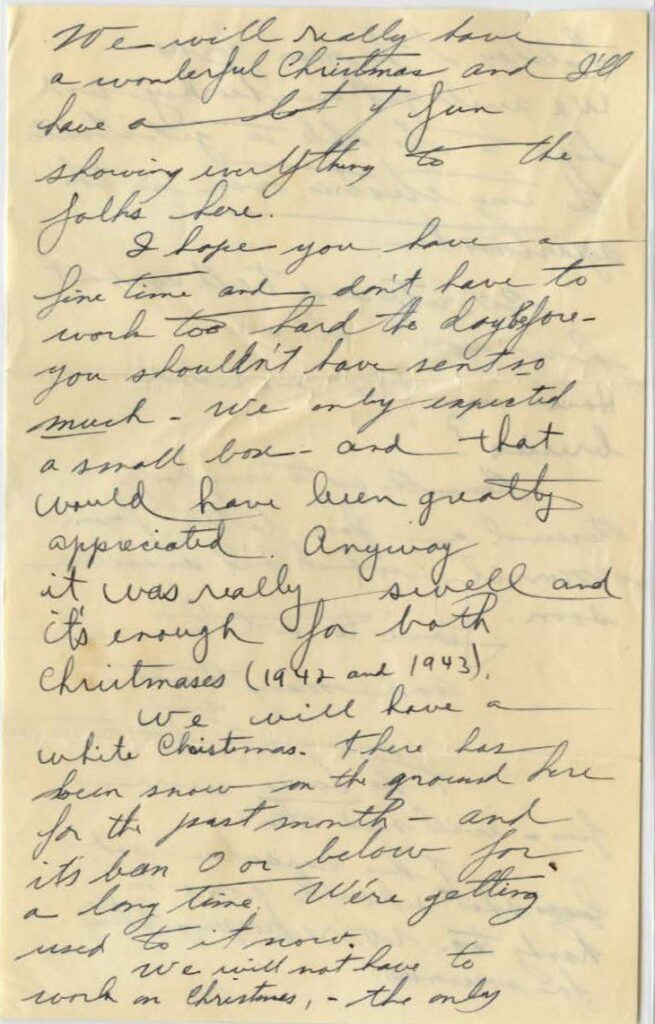 We will really have
a wonderful Christmas and I'll
have a lot of fun
showing everything to the
folks here.
I hope you have a
fine time and don't have to
work too hard the day before -
you shouldn't have sent so
much - We only expected
a small box - and that
would have been greatly
appreciated. Anyway
it was really swell and
it's enough for both
Christmases (1942 and 1943).
We will have a
white Christmas. There has
been snow on the ground here
for the past month - and
it's been 0 or below for
a long time. We're getting
used to it now.
We will not have to
work on Christmas, - the only